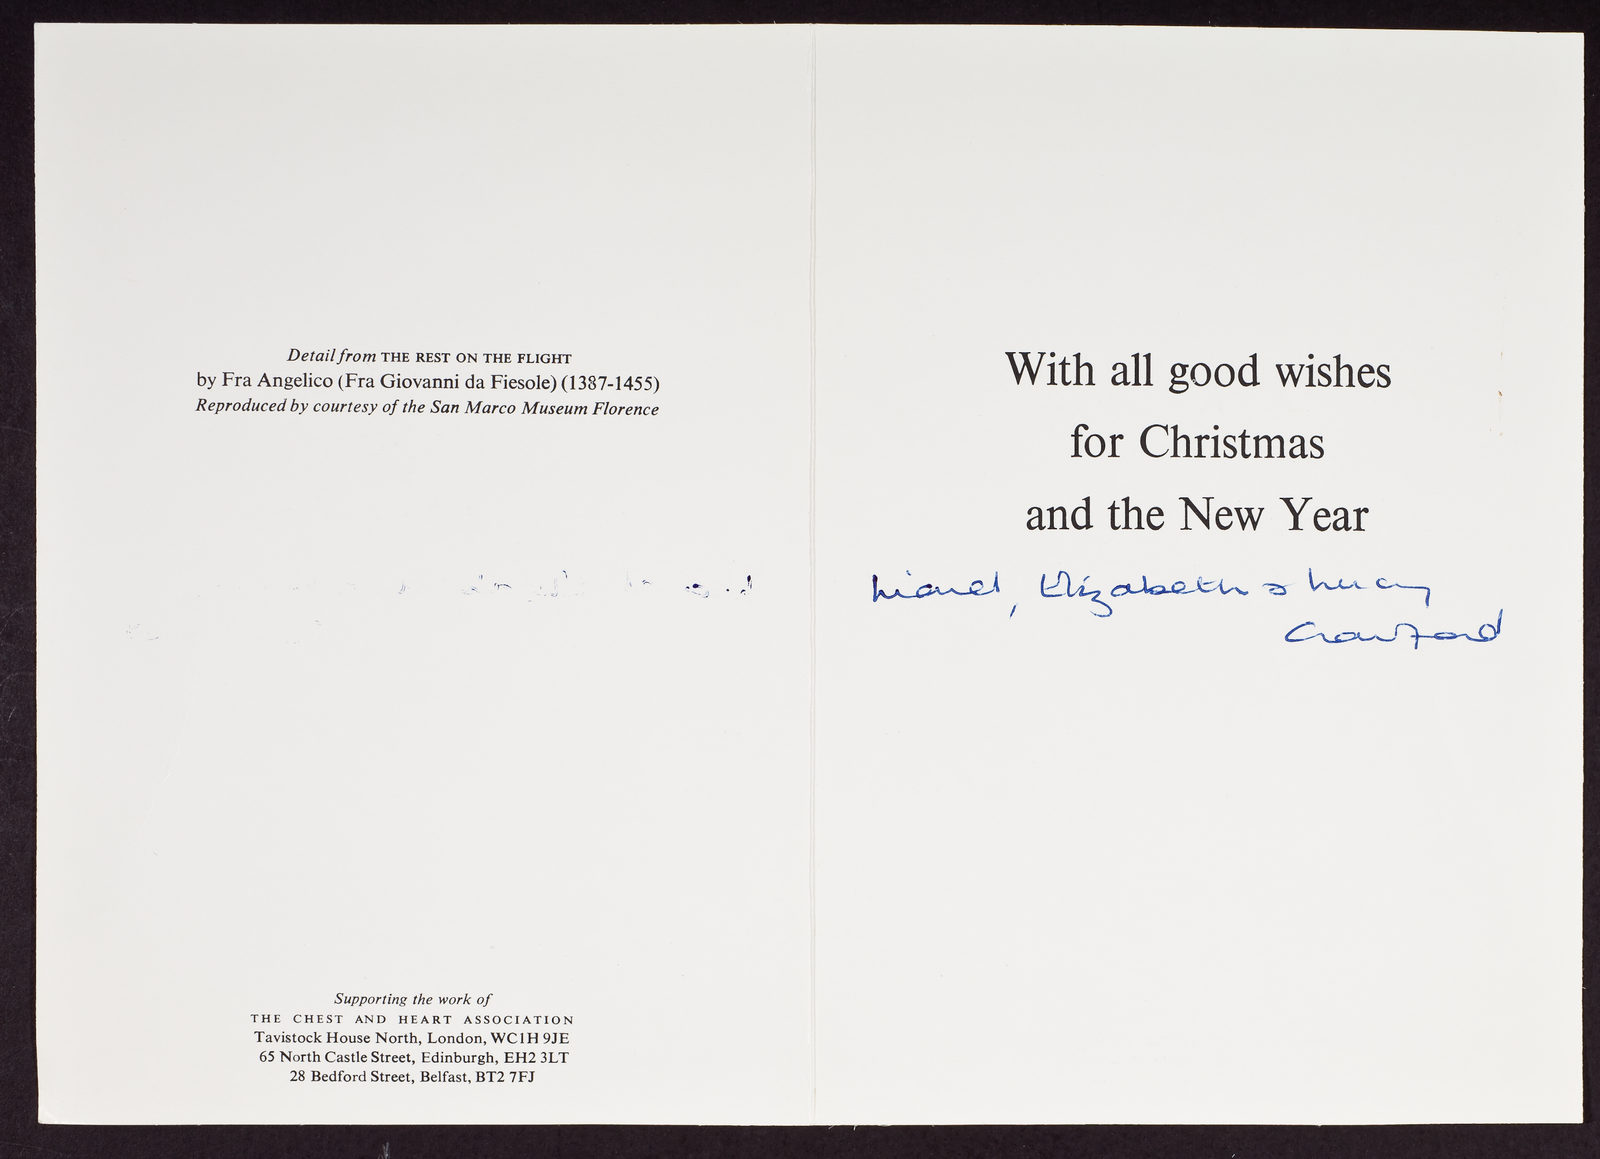 Detail from THE REST ON THE FLIGHT
by Fra Angelico (Fra Giovanni da Fiesole) (1387-1455)
Reproduced by courtesy of the San Marco Museum Florence
Supporting the work of
THE CHEST AND HEART ASSOCIATION
Tavistock House North, London, WC1H 9JE
65 North Castle Street, Edinburgh, EH2 3LT
28 Bedford Street, Belfast, BT2 7FJ
With all good wishes
for Christmas
and the New Year
Lionel, Elizabeth & Lucy
Crawford